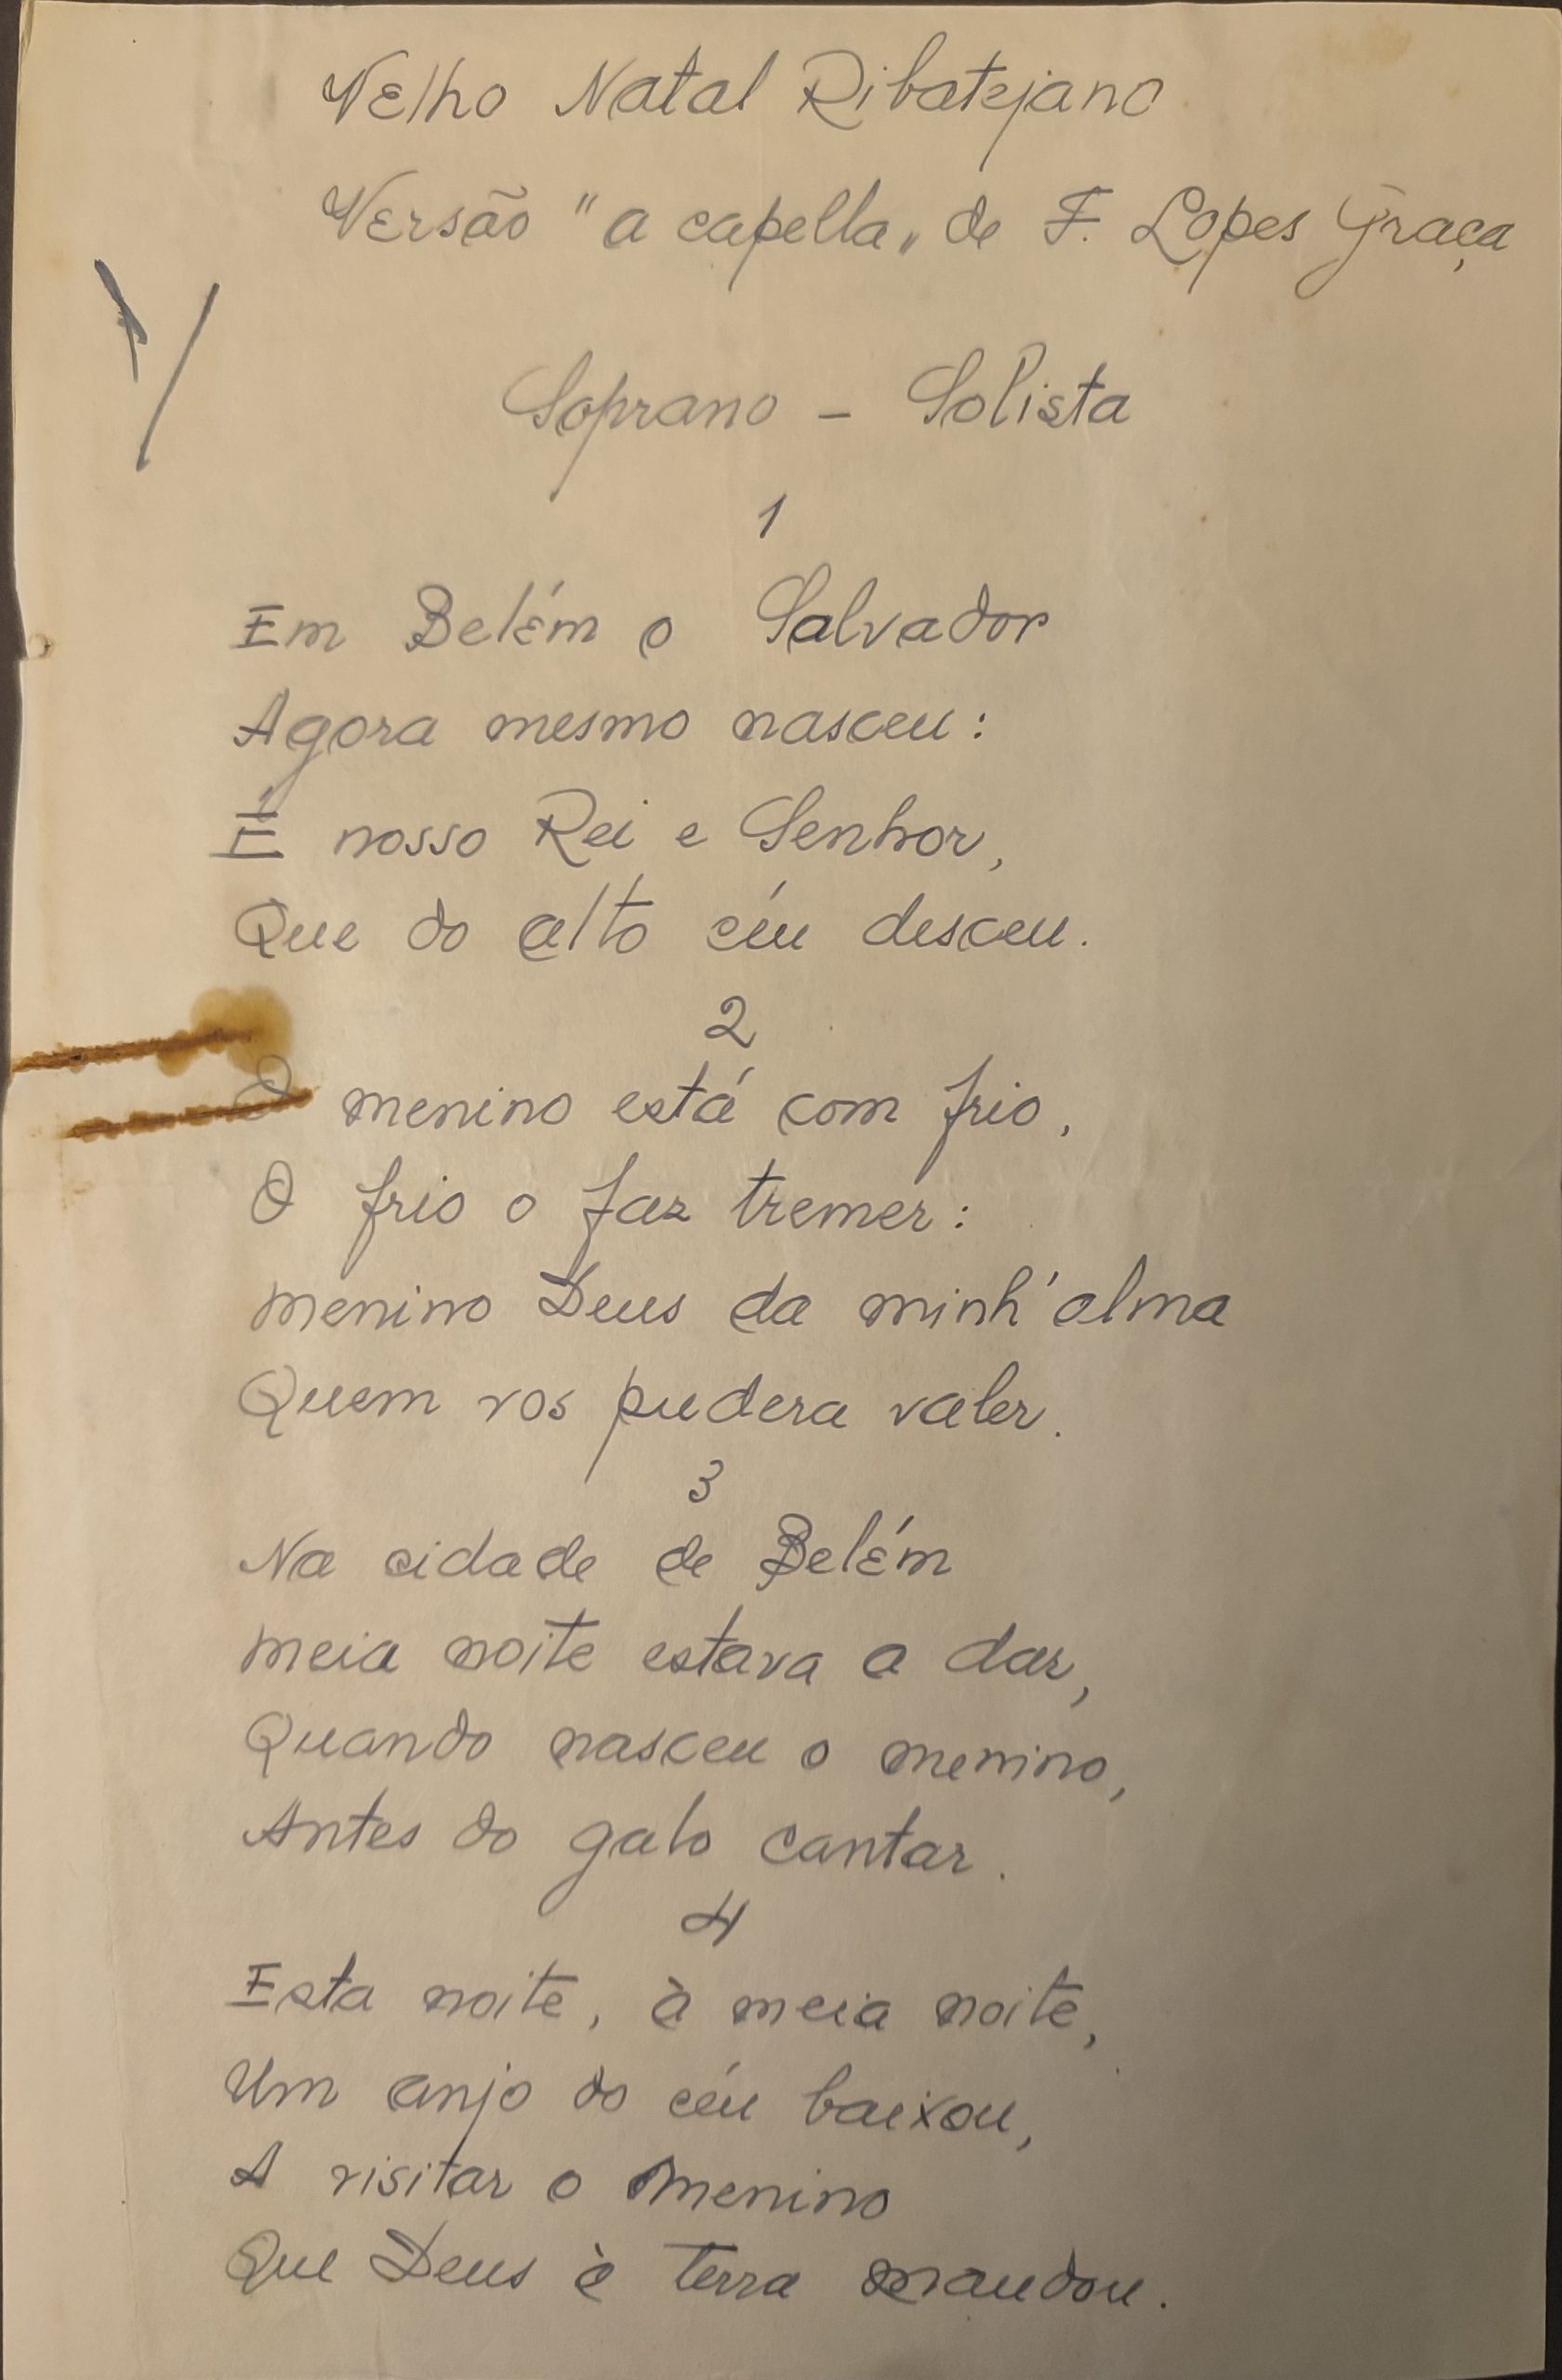 Velho Natal Ribatejano
Versão "a capella" de F. Lopes Graça
Soprano - Solista
1
Em Belém o Salvador
Agora mesmo nasceu:
É nosso Rei e Senhor,
Que do alto céu desceu.
2
O menino está com frio,
O frio o faz tremer:
Menino Deus da minh'alma
Quem vos pudera valer.
3
Na cidade de Belém
Meia noite estava a dar,
Quando nasceu o menino,
Antes do galo cantar.
4
Esta noite, à meia noite,
Um anjo do céu baixou,
A visitar o menino
Que Deus à terra mandou.